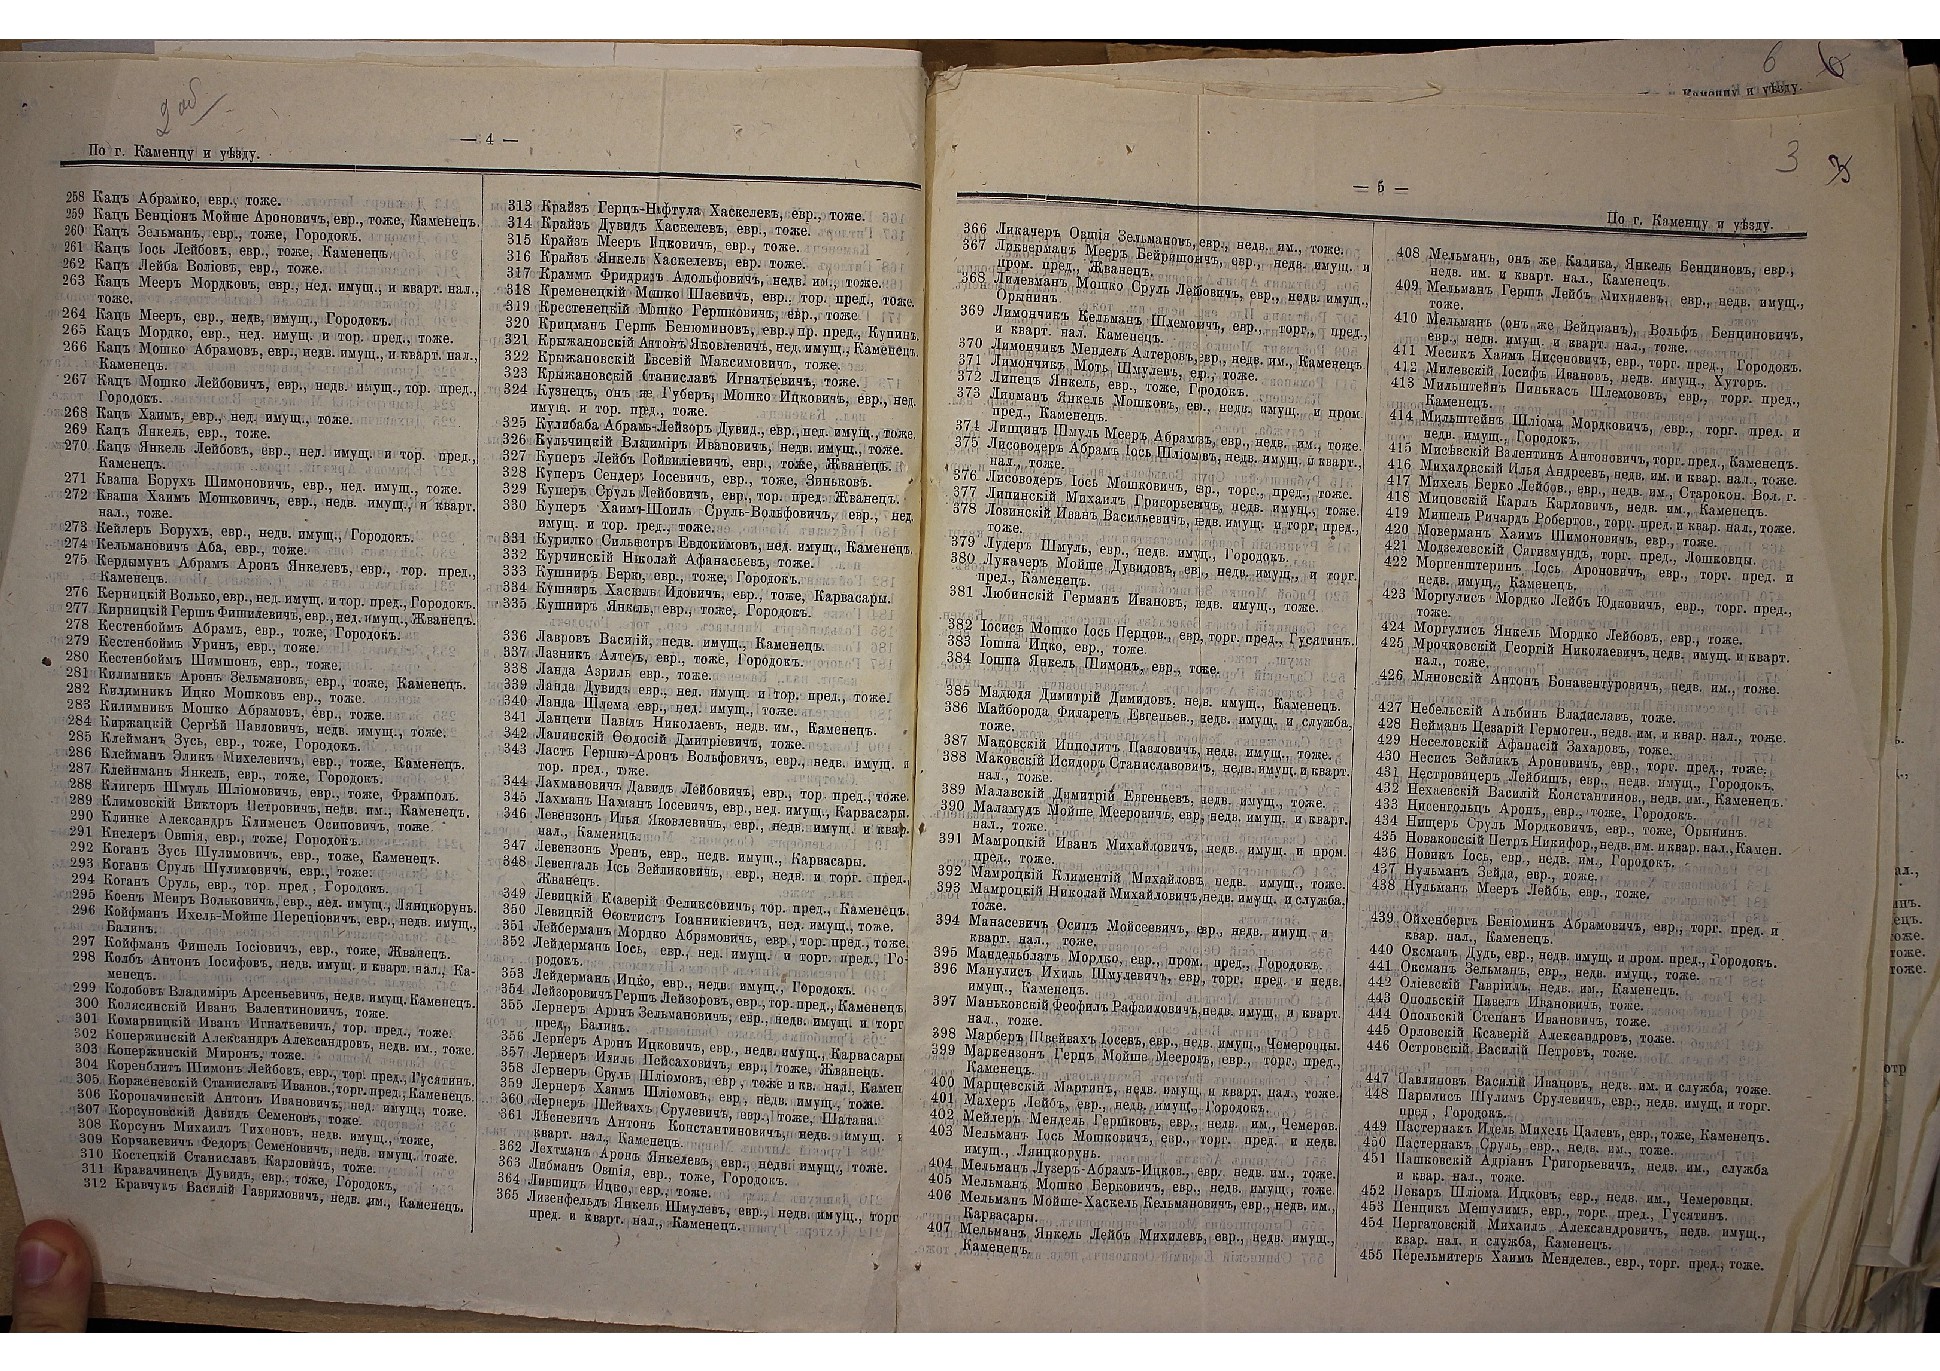 2 об
— 4 —
По г. Каменцу и уѣзду.
258 Кацъ Абрамко, евр., тоже.
259 Кацъ Бенціонъ Мойше Ароновичъ, евр., тоже, Каменецъ.
260 Кацъ Зельманъ, евр., тоже, Городокъ.
261 Кацъ Іось Лейбовъ, евр., тоже, Каменецъ.
262 Кацъ Лейба Воліовъ, евр., тоже.
263 Кацъ Мееръ Мордковъ, евр., нед. имущ., и кварт. нал.,
тоже.
264 Кацъ Мееръ, евр., недв. имущ., Городокъ.
265 Кацъ Мордко, евр., нед. имущ. и тор. пред., тоже.
266 Кацъ Мошко Абрамовъ, евр., недв. имущ., и кварт. нал.,
Каменецъ.
267 Кацъ Мошко Лейбовичъ, евр., недв. имущ., тор. пред.,
Городокъ.
268 Кацъ Хаимъ, евр., нед. имущ., тоже.
269 Кацъ Янкель, евр., тоже.
270 Кацъ Янкель Лейбовъ, евр., нед. имущ. и тор. пред.,
Каменецъ.
271 Кваша Борухъ Шимоновичъ, евр., нед. имущ., тоже.
272 Кваша Хаимъ Мошковичъ, евр., недв. имущ., и кварт.
нал., тоже.
273 Кейлеръ Борухъ, евр., недв. имущ., Городокъ.
274 Кельмановичъ Аба, евр., тоже.
275 Кердымунъ Абрамъ Аронъ Янкелевъ, евр., тор. пред.,
Каменецъ.
276 Керницкій Волько, евр., нед. имущ. и тор. пред., Городокъ.
277 Кирницкій Гершъ Фишилевичъ, евр., нед. имущ., Жванецъ.
278 Кестенбоймъ Абрамъ, евр., тоже, Городокъ.
279 Кестенбоймъ Уринъ, евр., тоже.
280 Кестенбоймъ Шимшонъ, евр., тоже.
281 Килимникъ Аронъ Зельмановъ, евр., тоже, Каменецъ.
282 Килимникъ Ицко Мошковъ евр., тоже.
283 Килимникъ Мошко Абрамовъ, евр., тоже.
284 Киржацкій Сергѣй Павловичъ, недв. имущ., тоже.
285 Клейманъ Зусь, евр., тоже, Городокъ.
286 Клейманъ Эликъ Михелевичъ, евр., тоже, Каменецъ.
287 Клейнманъ Янкель, евр., тоже, Городокъ.
288 Клигеръ Шмуль Шліомовичъ, евр., тоже, Фрамполь.
289 Климовскій Викторъ Петровичъ, недв. им., Каменецъ.
290 Клинке Александръ Клименсъ Осиповичъ, тоже.
291 Кнелеръ Овшія, евр., тоже, Городокъ.
292 Коганъ Зусь Шулимовичъ, евр., тоже, Каменецъ.
293 Коганъ Сруль Шулимовичъ, евр., тоже.
294 Коганъ Сруль, евр., тор. пред., Городокъ.
295 Коенъ Меиръ Вольковичъ, евр., нед. имущ., Лянцкорунь.
296 Койфманъ Ихель-Мойше Переціовичъ, евр., недв. имущ.,
Балинъ.
297 Койфманъ Фишель Іосіовичъ, евр., тоже, Жванецъ.
298 Колбъ Антонъ Іосифовъ, недв. имущ. и кварт. нал., Ка-
менецъ.
299 Колобовъ Владиміръ Арсеньевичъ, недв. имущ. Каменецъ.
300 Колясинскій Иванъ Валентиновичъ, тоже.
301 Комарницкій Иванъ Игнатьевичъ, тор. пред., тоже.
302 Копержинскій Александръ Александровъ, недв. им., тоже.
303 Копержинскій Миронъ, тоже.
304 Коренблитъ Шимонъ Лейбовъ, евр., тор. пред., Гусятинъ.
305 Корженевскій Станиславъ Иванов., торг. пред., Каменецъ.
306 Коропачинскій Антонъ Ивановичъ, нед. имущ., тоже.
307 Корсуновскій Давидъ Семеновъ, тоже.
308 Корсунъ Михаилъ Тихоновъ, недв. имущ., тоже,
309 Корчакевичъ Федоръ Семеновичъ, недв. имущ., тоже.
310 Костецкій Станиславъ Карловичъ, тоже.
311 Кравачинецъ Дувидъ, евр., тоже, Городокъ,
312 Кравчукъ Василій Гавриловичъ, недв. им., Каменецъ.
313 Крайзъ Герцъ-Нафтула Хаскелек, евр., тоже.
314 Крайзъ Дувидъ Хаскелевъ, евр., тоже.
315 Крайзъ Мееръ Ицковичъ, евр., тоже.
316 Крайзъ Янкель Хаскелевъ, евр. тоже.
317 Краммъ Фридрихъ Адольфовичъ, недв. им., тоже.
318 Кременецкій Мошко Шаевичъ, евр., тор. пред., тоже.
319 Крестенецкій Мошко Гершковичъ, евр., тоже
320 Крицманъ Гершъ Бенюминовъ, евр., пр. пред., Купинъ
321 Крыжановскій Антонъ Яковлевичъ, нед. имущ., Каменецъ.
322 Крыжановскій Евсевій Максимовичъ, тоже.
323 Крыжановскій Станиславъ Игнатьевичъ, тоже.
324 Кузнецъ, онъ же Губеръ, Мошко Ицковичъ, евр., нед.
имущ. и тор. пред., тоже.
325 Кулибаба Абрамъ-Лейзоръ Дувид., евр., нед. имущ., тоже.
326 Кульчицкій Владиміръ Ивановичъ, недв. имущ., тоже.
327 Куперъ Лейбъ Гойвиліевичъ, евр., тоже, Жванецъ.
328 Куперъ Сендеръ Іосевичъ, евр., тоже, Зиньковъ.
329 Куперъ Сруль Лейбовичъ, евр., тор. пред. Жванецъ.
330 Куперъ Хаимъ-Шоиль Сруль-Вольфовичъ, евр., нед.
имущ. и тор. пред., тоже.
331 Курилко Сильвестръ Евдокимовъ, нед. имущ., Каменецъ.
332 Курчинскій Николай Афанасьевъ, тоже.
333 Кушниръ Берко, евр., тоже, Городокъ.
334 Кушниръ Хаскель Идовичъ, евр., тоже, Карвасары.
335 Кушниръ Янкель, евр., тоже, Городокъ.
336 Лавровъ Василій, недв. имущ., Каменецъ.
337 Лазникъ Алтеръ, евр., тоже, Городокъ.
338 Ланда Азриль евр., тоже.
339 Ланда Дувидъ евр., нед. имущ. и тор. пред., тоже.
340 Ланда Шлема евр., нед. имущ., тоже.
341 Ланцети Павелъ Николаевъ, недв. им., Каменецъ.
342 Лапинскій Ѳеодосій Дмитріевичъ, тоже.
343 Ластъ Гершко-Аронъ Вольфовичъ, евр., недв. имущ. и
тор. пред., тоже.
344 Лахмановичъ Давидъ Лейбовичъ, евр., тор. пред., тоже.
345 Лахманъ Нахманъ Іосевичъ, евр., нед. имущ., Карвасары.
346 Левензонъ Илья Яковлевичъ, евр., недв. имущ. и квар.
нал., Каменецъ.
347 Левензонъ Уренъ, евр., недв. имущ., Карвасары.
348 Левенталь Іось Зейликовичъ, евр., недв. и торг. пред.,
Жванецъ.
349 Левицкій Ксаверій Феликсовичъ, тор. пред., Каменецъ.
350 Левицкій Ѳеоктистъ Іоанникіевичъ, нед. имущ., тоже.
351 Лейберманъ Мордко Абрамовичъ, евр., тор. пред., тоже.
352 Лейдерманъ Іось, евр., нед. имущ. и торг. пред., Го-
родокъ.
353 Лейдерманъ Ицко, евр., недв. имущ., Городокъ.
354 Лейзоровичъ Гершъ Лейзоровъ, евр., тор. пред., Каменецъ,
355 Лернеръ Аронъ Зельмановичъ, евр., недв. имущ. и торг
пред., Балинъ.
356 Лернеръ Аронъ Ицковичъ, евр., недв. имущ., Карвасары
357 Лернеръ Ихиль Пейсаховичъ, евр., тоже, Жванецъ.
358 Лернеръ Сруль Шліомовъ, евр., тоже и кв. нал. Камен
359 Лернеръ Хаимъ Шліомовъ, евр., недв. имущ., тоже.
360 Лернеръ Шейвахъ Срулевичъ, евр., тоже, Шатава.
361 Лѣсневичъ Антонъ Константиновичъ, недв. имущ. и
кварт. нал., Каменецъ.
362 Лехтманъ Аронъ Янкелевъ, евр., недв. имущ., тоже.
363 Либманъ Овшія, евр., тоже, Городокъ.
364 Лившицъ Ицко, евр., тоже.
365 Лизенфельдъ Янкель Шмулевъ, евр., недв. имущ., торг
пред. и кварт. нал., Каменецъ.
6
Каменцу и уѣзду.
3
— 5 —
По г. Каменцу и уѣзду.
366 Ликачеръ Овшія Зельмановъ, евр., недв. им., тоже.
367 Ликверманъ Мееръ Бейришовичъ, евр., недв. имущ. и
пром. пред., Жванецъ.
368 Лилевманъ Мошко Сруль Лейбовичъ, евр., недв. имущ.,
Орынинъ.
369 Лимончикъ Кельманъ Шлемовичъ, евр., торг., пред.,
и кварт. нал. Каменецъ.
370 Лимончикъ Мендель Алтеровъ, евр., недв. им., Каменецъ
371 Лимончикъ Мотъ Шмулевъ, евр., тоже.
372 Липецъ Янкель, евр., тоже, Городокъ.
373 Липманъ Янкель Мошковъ, евр., недв. имущ. и пром.
пред., Каменецъ.
374 Липщинъ Шмуль Мееръ Абрамовъ, евр., недв. им., тоже.
375 Лисоводеръ Абрамъ Іось Шліомовъ, недв. имущ. и кварт.,
нал., тоже.
376 Лисоводеръ Іось Мошковичъ, евр., торг., пред., тоже.
377 Липинскій Михаилъ Григорьевичъ, недв. имущ., тоже.
378 Лозинскій Иванъ Васильевичъ, недв. имущ. и торг. пред.,
тоже.
379 Лудеръ Шмуль, евр., недв. имущ., Городокъ.
380 Лукачеръ Мойше Дувидовъ, евр., недв. имущ., и торг.
пред., Каменецъ.
381 Любинскій Германъ Ивановъ, недв. имущ., тоже.
382 Іосисъ Мошко Іось Перцов., евр, торг. пред., Гусятинъ.
383 Іошпа Ицко, евр., тоже.
384 Іошпа Янкель Шимонъ, евр., тоже.
385 Мадюдя Димитрій Димидовъ, недв. имущ., Каменецъ.
386 Майборода Филаретъ Евгеньев., недв. имущ. и служба,
тоже.
387 Маковскій Ипполитъ Павловичъ, недв. имущ., тоже.
388 Маковскій Исидоръ Станиславовичъ, недв. имущ. и кварт.
нал., тоже.
389 Малавскій Димитрій Евгеньев, недв. имущ., тоже.
390 Маламудъ Мойше Мееровичъ, евр, недв. имущ. и кварт.
нал., тоже.
391 Мамроцкій Иванъ Михайловичъ, недв. имущ. и пром.
пред., тоже.
392 Мамроцкій Климентій Михайловъ недв. имущ., тоже.
393 Мамроцкій Николай Михайловичъ, недв. имущ. и служба,
тоже.
394 Манасевичъ Осипъ Мойсеевичъ, евр., недв. имущ. и
кварт. нал., тоже.
395 Мандельблатъ Мордко, евр., пром. пред., Городокъ.
396 Манулисъ Ихиль Шмулевичъ, евр., торг. пред. и недв.
имущ., Каменецъ.
397 Маньковскій Феофилъ Рафаиловичъ, недв. имущ. и кварт.
нал., тоже.
398 Марберъ Швейвахъ Іосевъ, евр., недв. имущ., Чемероццы.
399 Маркензонъ Герцъ Мойше Мееровъ, евр., торг. пред.,
Каменецъ.
400 Марщевскій Мартинъ, недв. имущ. и кварт. нал., тоже.
401 Махеръ Лейбъ, евр., недв. имущ., Городокъ.
402 Мейлеръ Мендель Гершковъ, евр., недв. им., Чемеров.
403 Мельманъ Іось Мошковичъ, евр., торг. пред. и недв.
имущ., Лянцкорунь.
404 Мельманъ Лузеръ-Абрамъ-Ицков., евр., недв. им., тоже.
405 Мельманъ Мошко Берковичъ, евр., недв. имущ., тоже.
406 Мельманъ Мойше-Хаскель Кельмановичъ, евр., недв. им.,
Карвасары.
407 Мельманъ Янкель Лейбъ Михилевъ, евр., недв. имущ.,
Каменецъ.
408 Мельманъ, онъ же Калика, Янкель Бенциновъ, евр.,
недв. им. и кварт. нал., Каменецъ.
409 Мельманъ Гершъ Лейбъ Михилевъ, евр., недв. имущ.,
тоже.
410 Мельманъ (онъ же Вейцманъ), Вольфъ Бенциновичъ,
евр., недв. имущ. и кварт. нал., тоже.
411 Месикъ Хаимъ Нисеновичъ, евр., торг. пред., Городокъ.
412 Милевскій Іосифъ Ивановъ, недв. имущ., Хуторъ.
413 Мильштейнъ Пинькасъ Шлемовов, евр., торг. пред.,
Каменецъ.
414 Мильштейнъ Шліома Мордковичъ, евр., торг. пред. и
недв. имущ., Городокъ.
415 Мисѣвскій Валентинъ Антоновичъ, торг. пред., Каменецъ.
416 Михаловскій Илья Андреевъ, недв. им. и кварт. нал., тоже.
417 Михель Берко Лейбов., евр., недв. им., Старокон. Вол. г.
418 Мицовскій Карлъ Карловичъ, недв. им., Каменецъ.
419 Мишель Ричардъ Робертов., торг. пред. и квар. нал., тоже.
420 Моверманъ Хаимъ Шимоновичъ, евр., тоже.
421 Модзелевскій Сигизмундъ, торг. пред., Лошковцы.
422 Моргенштеринъ Іось Ароновичъ, евр., торг. пред. и
недв. имущ., Каменецъ.
423 Моргулисъ Мордко Лейбъ Юдковичъ, евр., торг. пред.,
тоже.
424 Моргулисъ Янкель Мордко Лейбовъ, евр., тоже.
425 Мрочковскій Георгій Николаевичъ, недв. имущ. и кварт.
нал., тоже.
426 Мяновскій Антонъ Бонавентуровичъ, недв. им., тоже.
427 Небельскій Альбинъ Владиславъ, тоже.
428 Нейманъ Цезарій Гермоген., недв. им. и квар. нал., тоже.
429 Неселовскій Афанасій Захаровъ, тоже.
430 Несисъ Зейликъ Ароновичъ, евр., торг. пред., тоже.
431 Нестровицеръ Лейбишъ, евр., недв. имущ., Городокъ.
432 Нехаевскій Василій Константинов., недв. им., Каменецъ.
433 Нисенгольцъ Аронъ, евр., тоже, Городокъ.
434 Нищеръ Сруль Мордковичъ, евр., тоже, Орынинъ.
435 Новаковскій Петръ Никифор., недв. им. и квар. нал., Камен.
436 Новикъ Іось, евр., недв. им., Городокъ.
437 Нульманъ Зейда, евр., тоже.
438 Нульманъ Мееръ Лейбъ, евр., тоже.
439 Ойхенбергъ Беніоминъ Абрамовичъ, евр., торг. пред. и
квар. нал., Каменецъ.
440 Оксманъ Дудь, евр., недв. имущ. и пром. пред., Городокъ.
441 Оксманъ Зельманъ, евр., недв. имущ., тоже.
442 Оліевскій Гавріилъ, недв. им., Каменецъ.
443 Опольскій Павелъ Ивановичъ, тоже.
444 Опольскій Степанъ Ивановичъ, тоже.
445 Орловскій Ксаверій Александровъ, тоже.
446 Островскій Василій Петровъ, тоже.
447 Павлиновъ Василій Ивановъ, недв. им. и служба, тоже.
448 Парылисъ Шулимъ Срулевичъ, евр., недв. имущ. и торг.
пред., Городокъ.
449 Пастернакъ Идель Михель Цалевъ, евр., тоже, Каменецъ.
450 Пастернакъ Сруль, евр., недв. им., тоже.
451 Пашковскій Адріанъ Григорьевичъ, недв. им., служба
и квар. нал., тоже.
452 Пекаръ Шліома Ицковъ, евр., недв. им., Чемеровцы.
453 Пенцикъ Мешулимъ, евр., торг. пред., Гусятинъ.
454 Пергатовскій Михаилъ Александровичъ, недв. имущ.,
квар. нал. и служба, Каменецъ.
455 Перельмитеръ Хаимъ Менделев., евр., торг. пред., тоже.